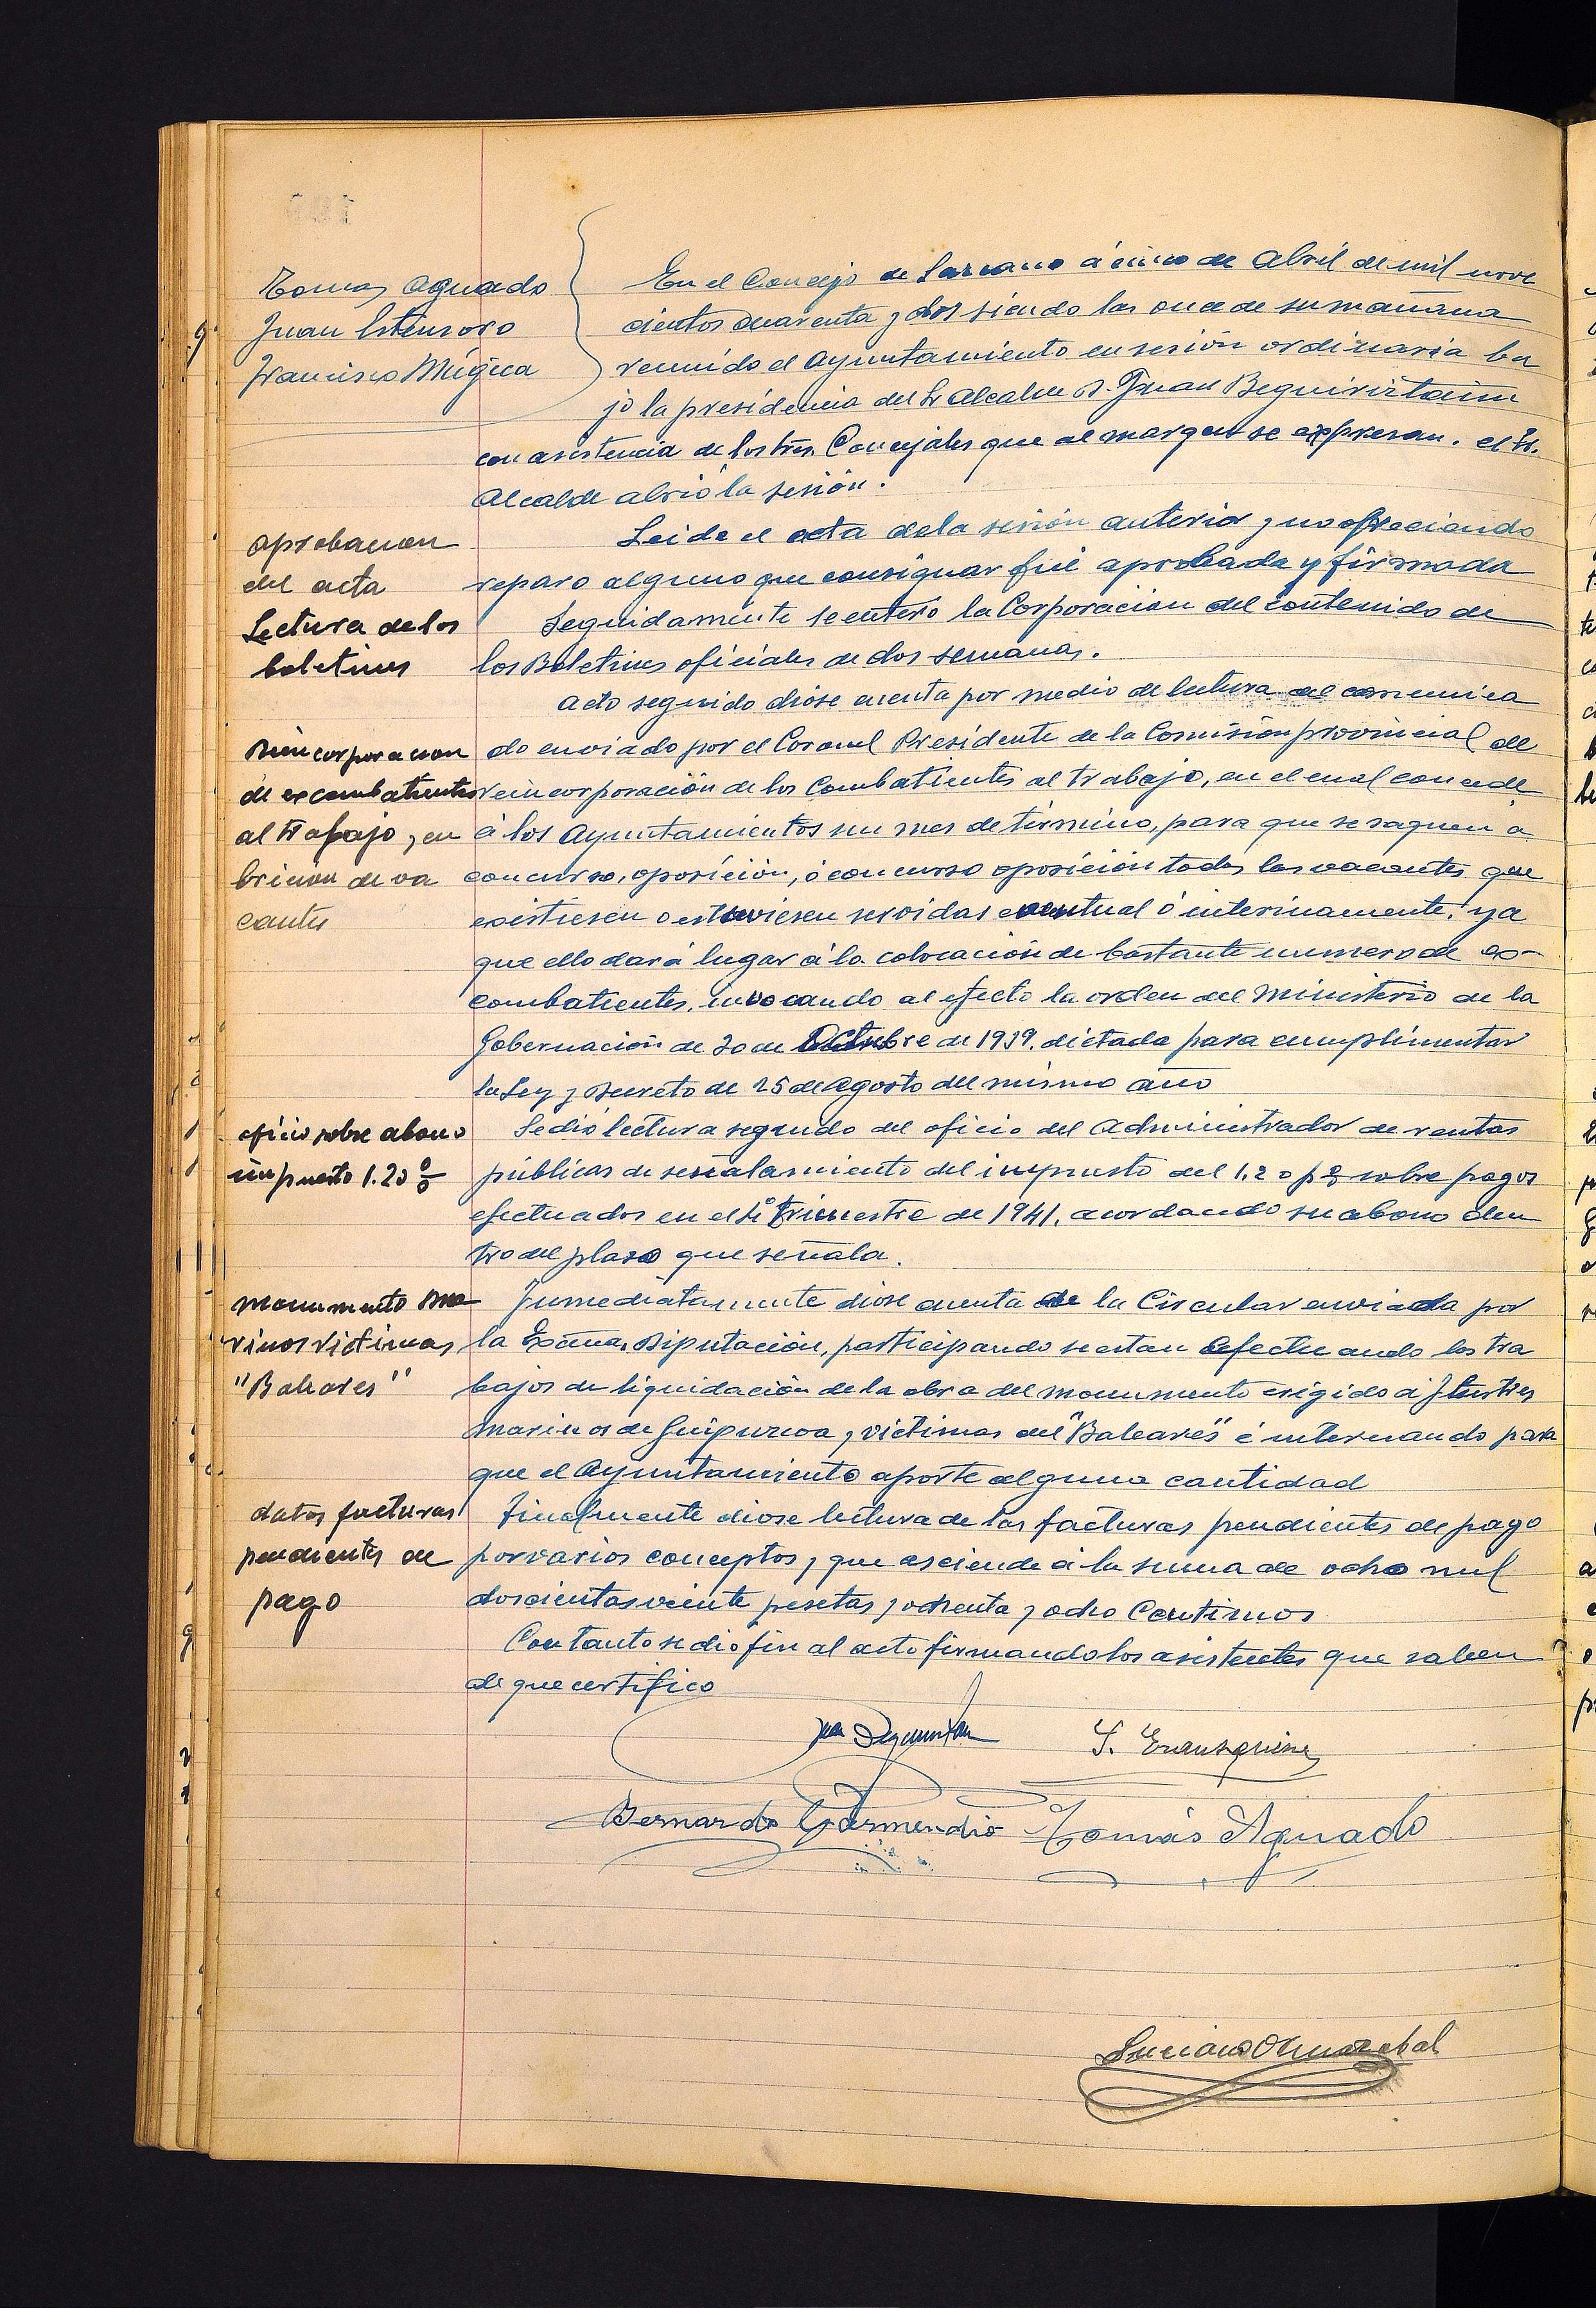 Tomas Aguado
Juan Istensoro
Francisco Múgica
En el Concejo de Lazcano á cinco de Abril de mil nove
cientos cuarenta y dos siendo las once de su mañana
reunido el Ayuntamiento en sesión ordinaria ba
jo la presidencia del Sr Alcalde D. Juan Beguiristain
con asistencia de los tres Concejales que al margen se expresan. el Sr.
Alcalde abrió la sesión.
aprobacion
del acta
Leida el acta de la sesión anterior y no ofreciendo
reparo alguno que consignar fué aprobada y firmada
Lectura de los
boletines
Seguidamente se enteró la Corporación del contenido de
los Boletines oficiales de dos semanas.
Reincorporacion
de excombatientes
al trabajo, en
bricion de va
cantes
Acto seguido dióse cuenta por medio de lectura del comunica
do enviado por el Coronel Presidente de la Comisión provincial de
reincorporación de los Combatientes al trabajo, en el cual concede
á los Ayuntamientos un mes de término, para que se saquen a
concurso, oposición, ó concurso oposición todas las vacantes que
existiesen o estuviesen servidas eventual ó interinamente, ya
que ello dará lugar á la colocación de bastante numero de ex-
combatientes, invocando al efecto la orden del Ministerio de la
Gobernación de 30 de Octubre de 1939, dictada para cumplimentar
la Ley y Decreto de 25 de Agosto del mismo año
oficio sobre abono
impuesto 1.20 %
Se dió lectura segundo del oficio del Administrador de rentas
públicas de señalamiento del impuesto del 1,20 p% sobre pagos
efectuados en el 4º trimestre de 1941, acordando su abono den
tro del plazo que señala.
monumento Ma
rinos Victimas
"Baleares"
Inmediatamente diose cuenta de la Circular enviada por
la Excma. Diputación, participando se estan efectuando los tra
bajos de liquidación de la obra del monumento erigido á Ilustres
marinos de Guipuzcoa, victimas del "Baleares" é interesando para
que el Ayuntamiento aporte alguna cantidad
datos facturas
pendientes de
pago
Finalmente diose lectura de las facturas pendientes de pago
por varios conceptos, que asciende á la suma de ocho mil
doscientas veinte pesetas y ochenta y ocho Centimos
Con tanto se dió fin al acto firmando los asistentes que saben
de que certifico
Juan Beguiristain
Bernardo Garmendia Tomás Aguado
Luciano Ormazabal